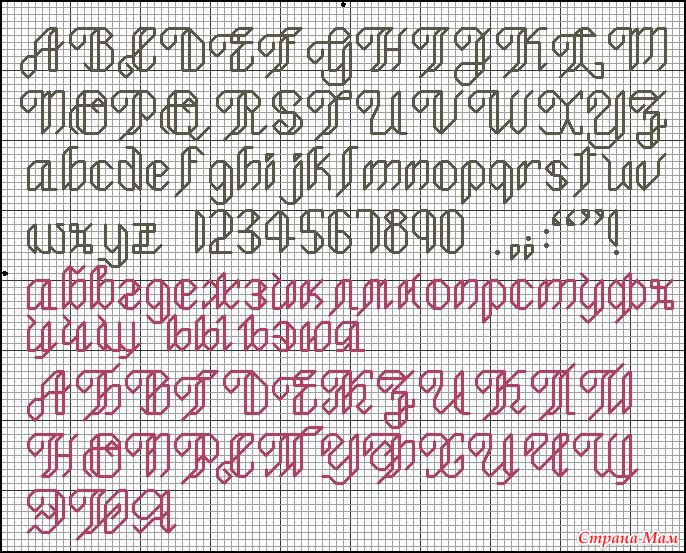 A B C D E F G H I J K L M
N O P Q R S T U V W X Y Z
a b c d e f g h i j k l m n o p q r s t u v
w x y z 1 2 3 4 5 6 7 8 9 0 . , , : “ ” !
а б в г д е ж з и к л м н о п р с т у ф х
ц ч ш ъ ы ь э ю а
А Б В Г Д Е Ж З И К Л М
Н О П Р С Т У Ф Х Ц Ч Щ
Э Ю Я
Страна Мам